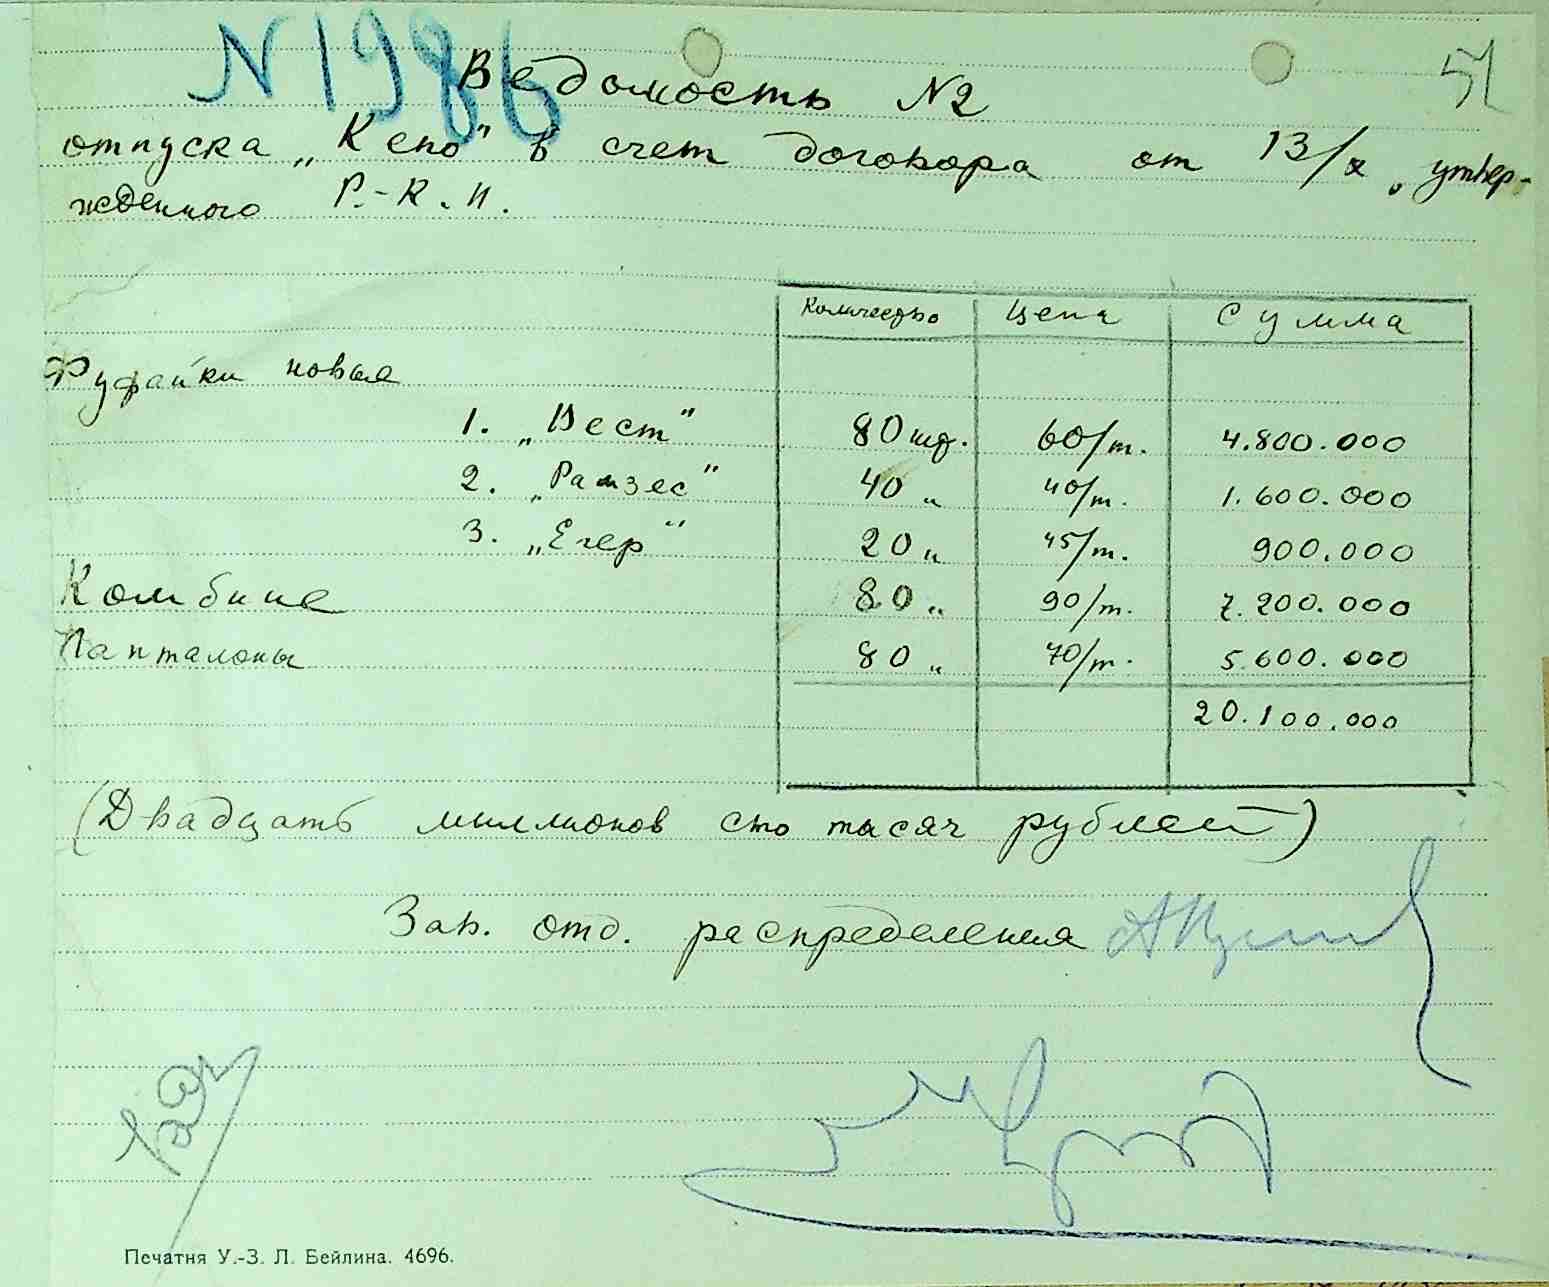 N 1986
51
Ведомость N2
отпуска „Кепо" в счет договора от 13/X, утвер-
жденного Р.-К.И.
Количество Цена Сумма
Фуфайки новые
1. „Вест" 80 шт. 60/т. 4.800.000
2. „Рамзес" 40 " 40/т. 1.600.000
3. „Егер" 20 " 45/т. 900.000
Комбине 80 " 90/т. 7.200.000
Панталоны 80 " 70/т. 5.600.000
20.100.000
(Двадцать миллионов сто тысяч рублей)
Зав. отд. распределения
Печатня У.-З. Л. Бейлина. 4696.